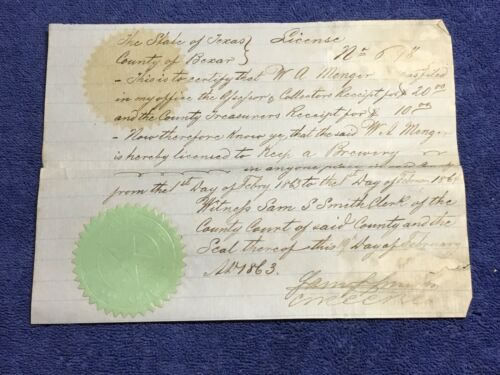 The State of Texas } License
County of Bexar } No 678
- This is to certify that W A Menger has filed
in my office the Assessor & Collectors Receipt for $ 20 00
and the County Treasurers Receipt for $ 10.00
- Now therefore Know ye, that the said W. A. Menger
is hereby licensed to Keep a Brewery
in any one place
from the 1st Day of Febry 1863 to the 1st Day of 186
Witness Sam S Smith Clerk of the
County Court of said County and the
Seal thereof this Day of February
AD 1863.
Sam S Smith